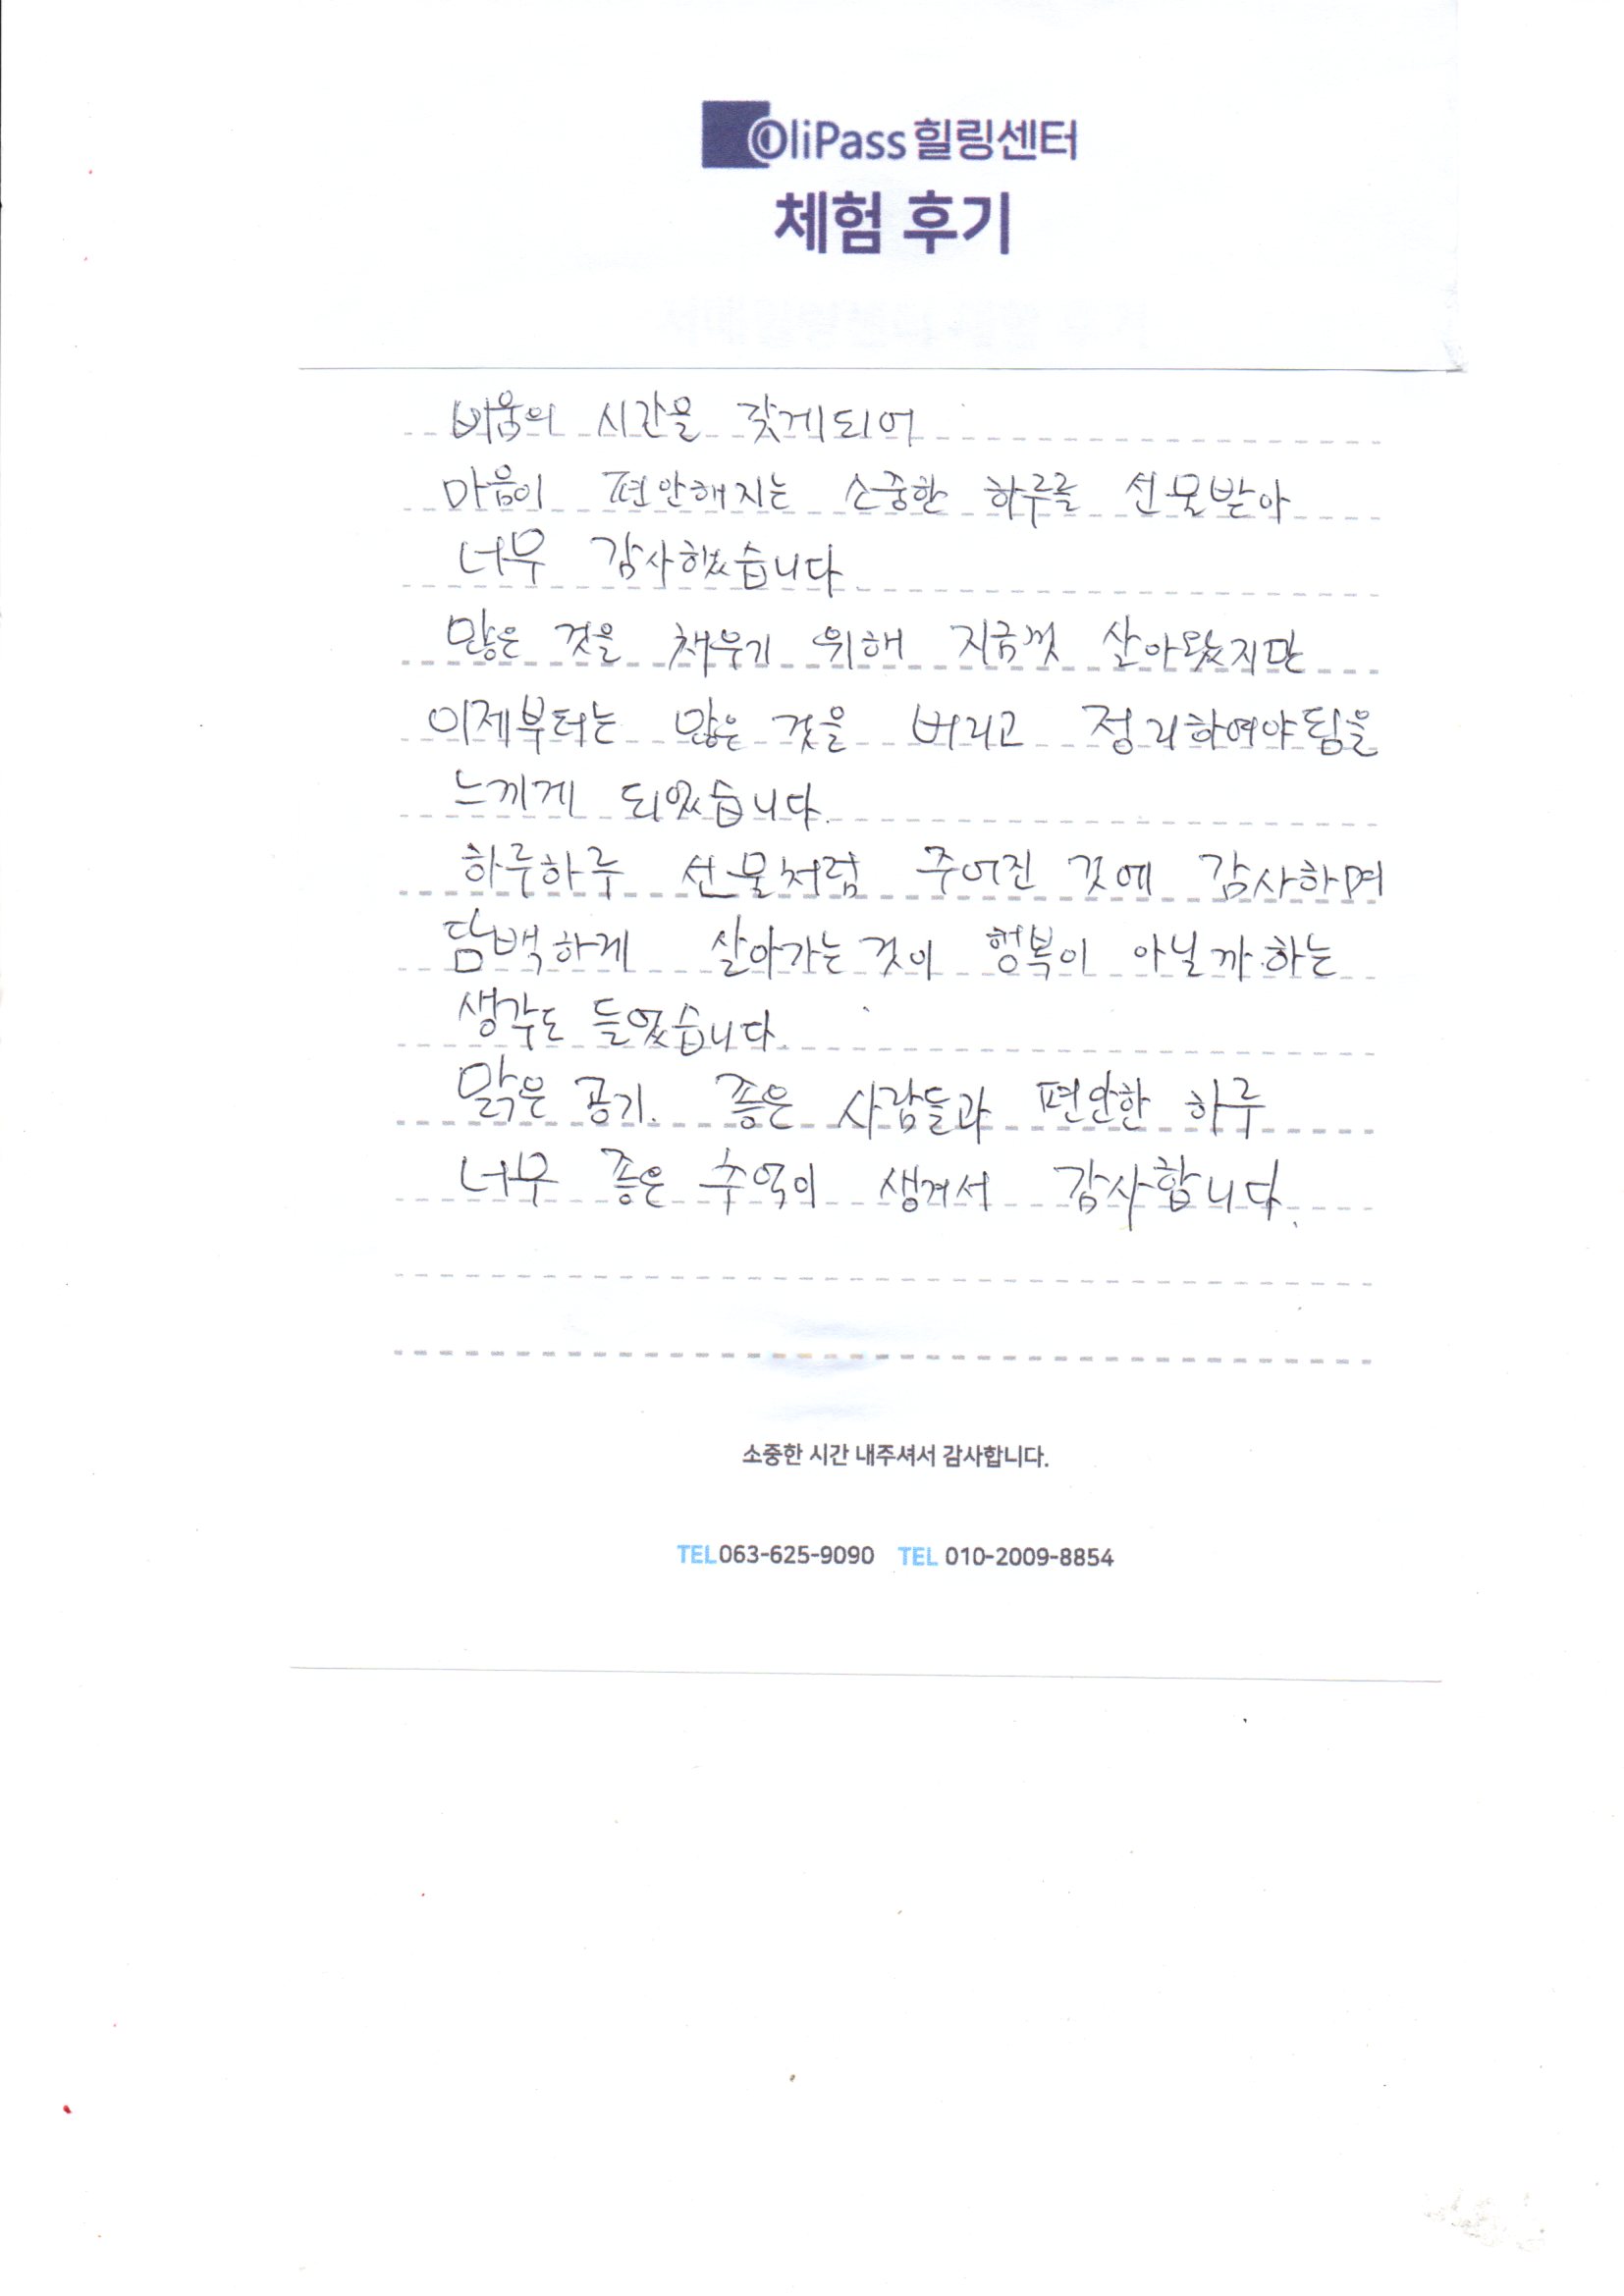 OliPass 힐링센터
체험 후기
비움의 시간을 갖게되어
마음이 편안해지는 소중한 하루를 선물받아
너무 감사했습니다.
많은 것을 채우기 위해 지금껏 살아왔지만
이제부터는 많은 것을 버리고 정리하여야됨을
느끼게 되었습니다.
하루하루 선물처럼 주어진 것에 감사하며
담백하게 살아가는 것이 행복이 아닐까 하는
생각도 들었습니다.
맑은 공기. 좋은 사람들과 편안한 하루
너무 좋은 추억이 생겨서 감사합니다.
소중한 시간 내주셔서 감사합니다.
TEL 063-625-9090 TEL 010-2009-8854